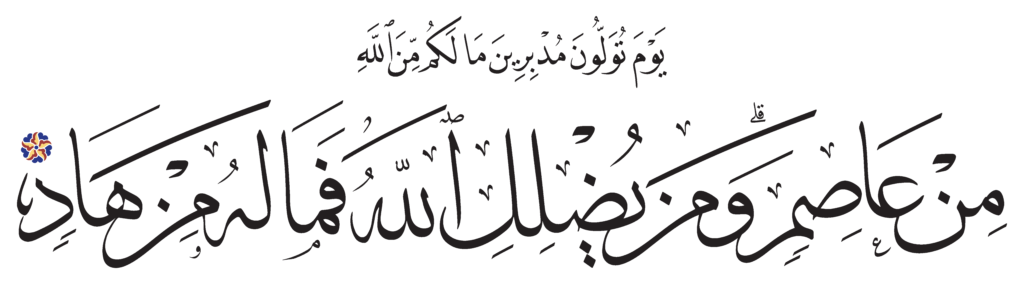 يَوْمَ تُوَلُّونَ مُدْبِرِينَ مَا لَكُم مِّنَ ٱللَّهِ
مِنْ عَاصِمٍ ۗ وَمَن يُضْلِلِ ٱللَّهُ فَمَا لَهُ مِنْ هَادٍ